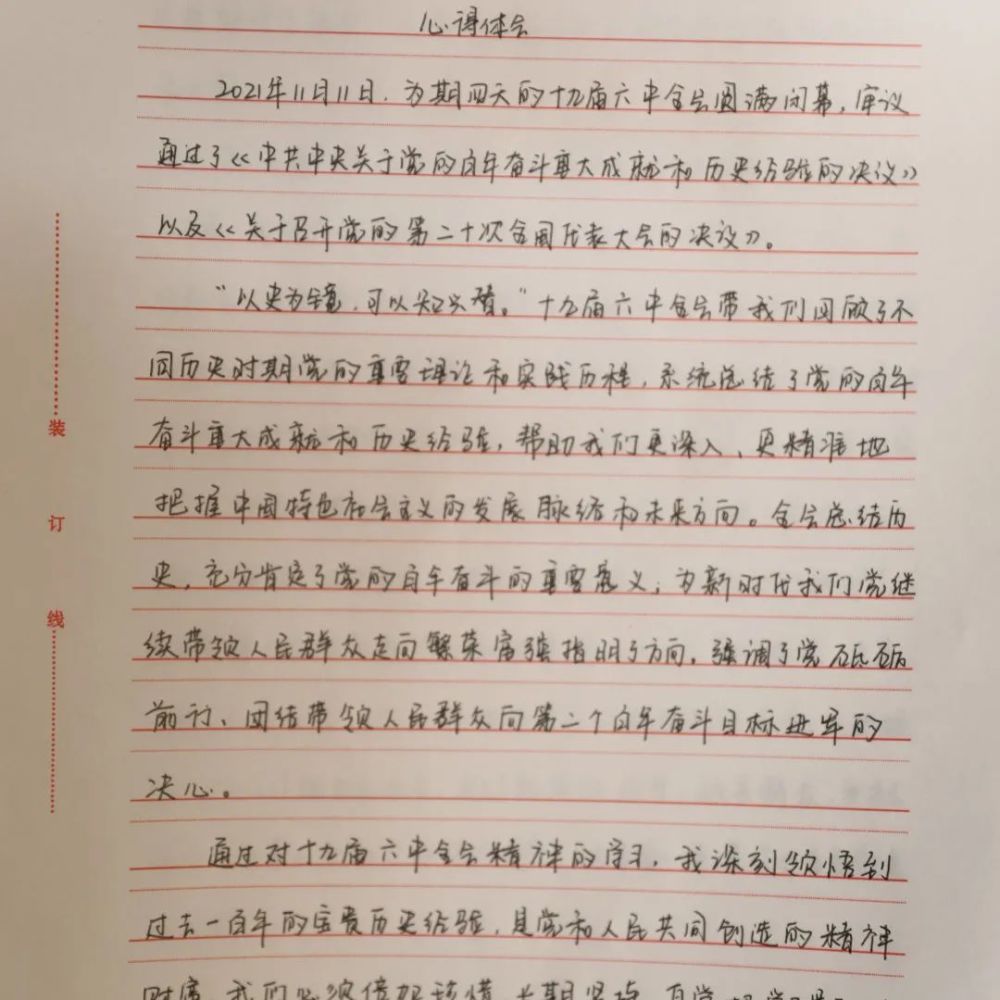 心得体会
2021年11月11日,为期四天的十九届六中全会圆满闭幕,审议
通过了《中共中央关于党的百年奋斗重大成就和历史经验的决议》
以及《关于召开党的第二十次全国代表大会的决议》。
“以史为镜,可以知兴替。”十九届六中全会带我们回顾了不
同历史时期党的重要理论和实践历程,系统总结了党的百年
奋斗重大成就和历史经验,帮助我们更深入、更精准地
把握中国特色社会主义的发展脉络和未来方向。全会总结历
史,充分肯定了党的百年奋斗的重要意义,为新时代我们党继
续带领人民群众走向繁荣富强指明了方向,强调了党砥砺
前行、团结带领人民群众向第二个百年奋斗目标进军的
决心。
通过对十九届六中全会精神的学习,我深刻领悟到
过去一百年的宝贵历史经验,是党和人民共同创造的精神
财富,我们必须倍加珍惜、长期坚持
装
订
线